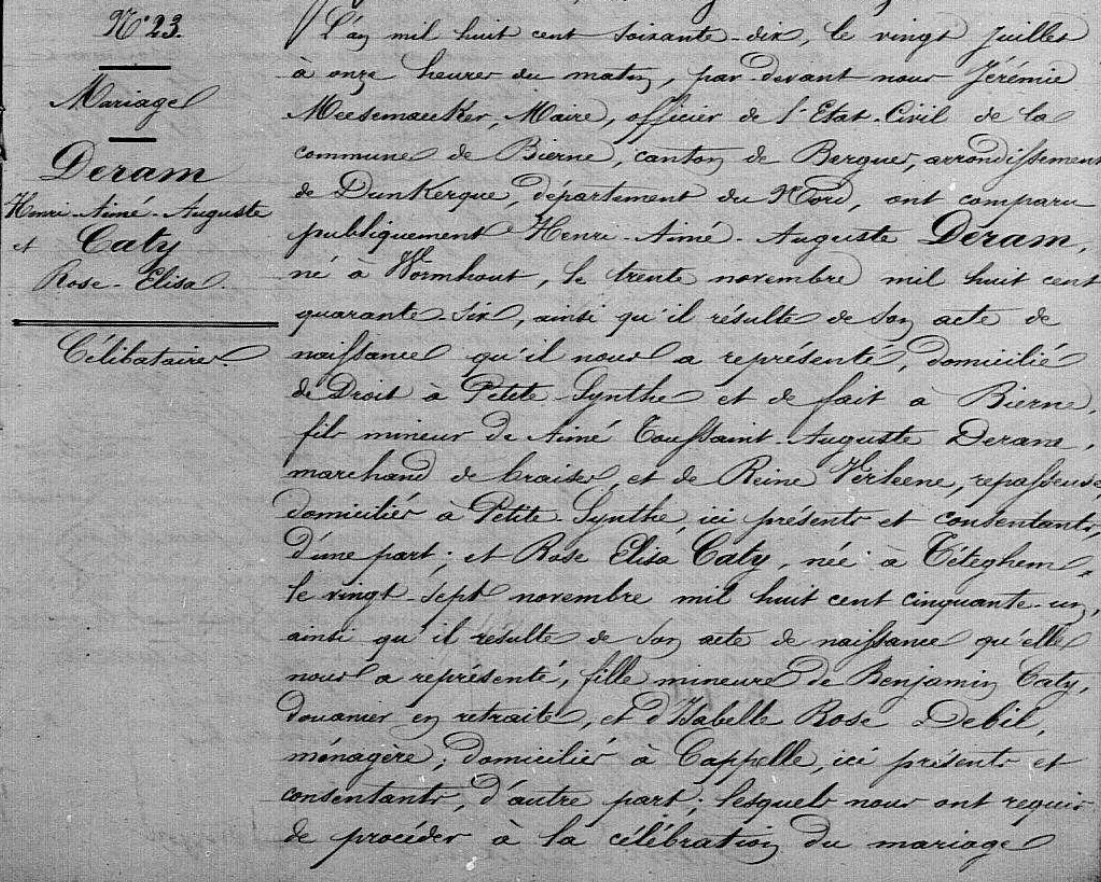 N° 23.
Mariage
Deram
Henri-Aimé-Auguste
et Caty
Rose-Elisa.
Célibataires.
L'an mil huit cent soixante-dix, le vingt juillet
à onze heures du matin, par devant nous Jérémie
Meesemaecker, Maire, officier de l'Etat-Civil de la
commune de Bierne, canton de Bergues, arrondissement
de Dunkerque, département du Nord, ont comparu
publiquement Henri-Aimé-Auguste Deram,
né à Wormhout, le trente novembre mil huit cent
quarante-six, ainsi qu'il résulte de son acte de
naissance qu'il nous a représenté, domicilié
de Droit à Petite-Synthe et de fait à Bierne,
fils mineur de Aimé Toussaint-Auguste Derame,
marchand de braises, et de Reine Verleene, repasseuse,
domiciliés à Petite-Synthe, ici présents et consentants,
d'une part; et Rose Elisa Caty, née à Téteghem,
le vingt-sept novembre mil huit cent cinquante-un,
ainsi qu'il résulte de son acte de naissance qu'elle
nous a représenté, fille mineure de Benjamin Caty,
douanier en retraite, et d'Isabelle Rose Debil,
ménagère, domiciliés à Cappelle, ici présents et
consentants, d'autre part; lesquels nous ont requis
de procéder à la célébration du mariage